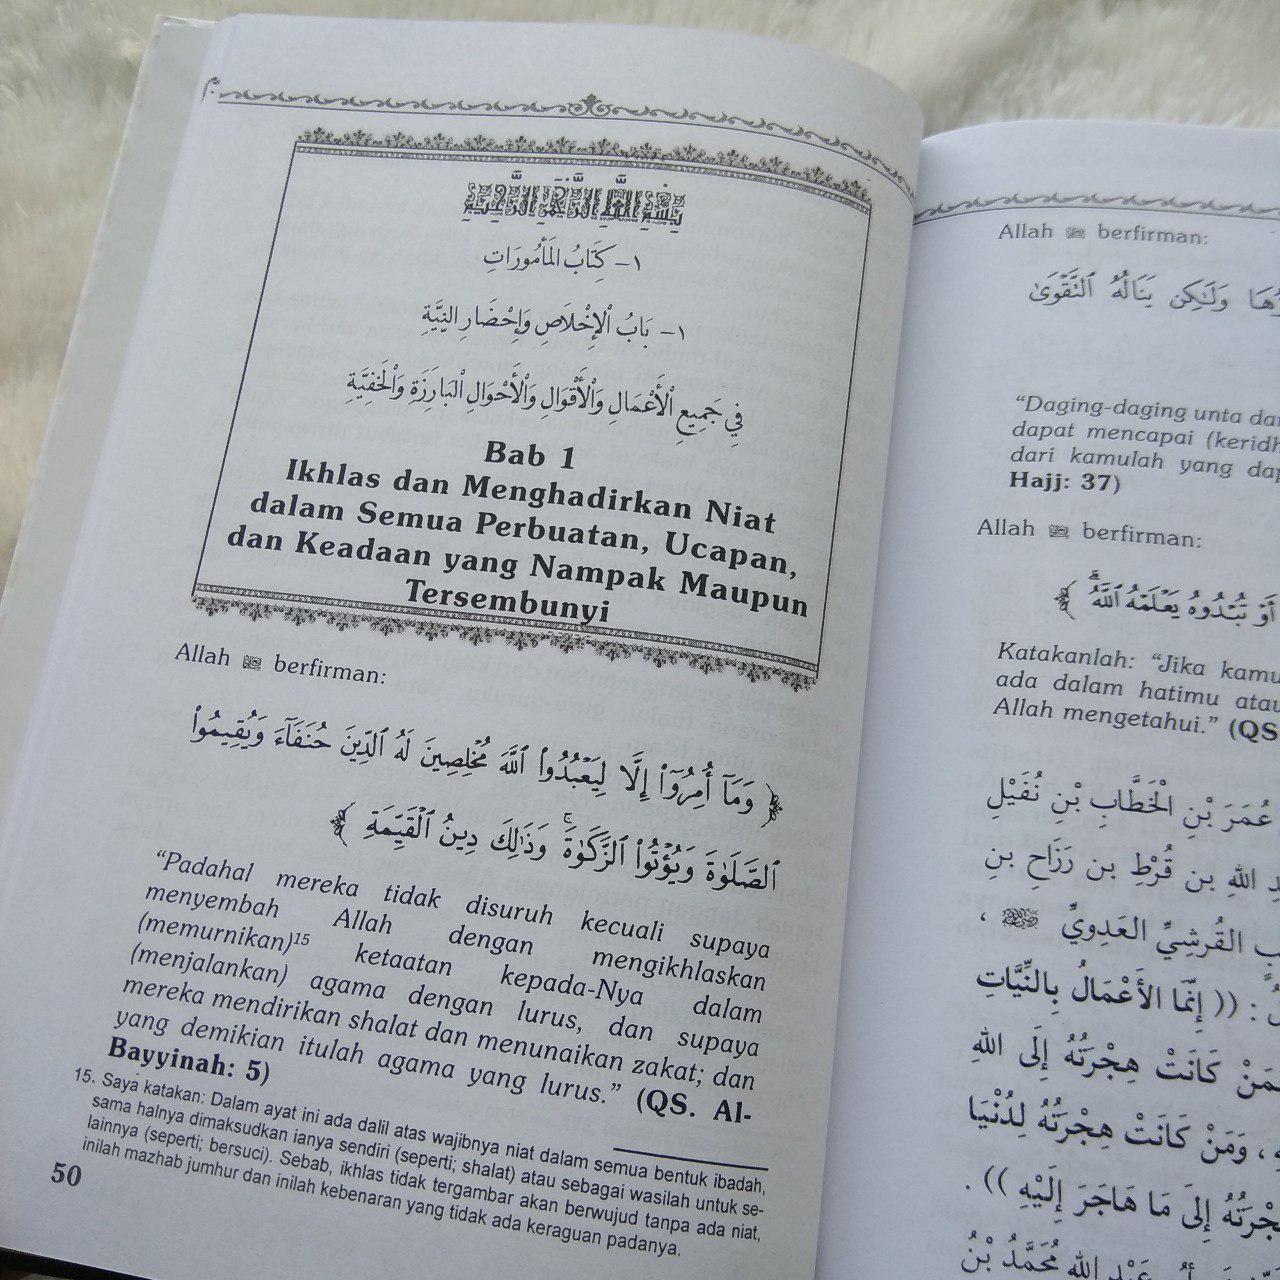 بِسْمِ اللَّهِ الرَّحْمَنِ الرَّحِيمِ
١- كِتَابُ المَأْمُورَاتِ
١- بَابُ الْإِخْلَاصِ وَإِحْضَارِ النِّيَّةِ
فِي جَمِيعِ الْأَعْمَالِ وَالْأَقْوَالِ وَالْأَحْوَالِ الْبَارِزَةِ وَالْخَفِيَّةِ
Bab 1
Ikhlas dan Menghadirkan Niat
dalam Semua Perbuatan, Ucapan,
dan Keadaan yang Nampak Maupun
Tersembunyi
Allah ﷻ berfirman:
﴿ وَمَآ أُمِرُوٓا۟ إِلَّا لِيَعْبُدُوا۟ ٱللَّهَ مُخْلِصِينَ لَهُ ٱلدِّينَ حُنَفَآءَ وَيُقِيمُوا۟
ٱلصَّلَوٰةَ وَيُؤْتُوا۟ ٱلزَّكَوٰةَ ۚ وَذَٰلِكَ دِينُ ٱلْقَيِّمَةِ ﴾
“Padahal mereka tidak disuruh kecuali supaya
menyembah Allah dengan mengikhlaskan
(memurnikan)¹⁵ ketaatan kepada-Nya dalam
(menjalankan) agama dengan lurus, dan supaya
mereka mendirikan shalat dan menunaikan zakat; dan
yang demikian itulah agama yang lurus.” (QS. Al-
Bayyinah: 5)
15. Saya katakan: Dalam ayat ini ada dalil atas wajibnya niat dalam semua bentuk ibadah,
sama halnya dimaksudkan ianya sendiri (seperti; shalat) atau sebagai wasilah untuk se-
lainnya (seperti; bersuci). Sebab, ikhlas tidak tergambar akan berwujud tanpa ada niat,
inilah mazhab jumhur dan inilah kebenaran yang tidak ada keraguan padanya.
50
Allah ﷻ berfirman:
وَلَٰكِن يَنَالُهُ ٱلتَّقْوَىٰ
“Daging-daging unta
dapat mencapai
dari kamulah yang
Hajj: 37)
Allah ﷻ berfirman:
أَوْ تُبْدُوهُ يَعْلَمْهُ ٱللَّهُ ۗ ﴾
Katakanlah: “Jika
ada dalam hatimu
Allah mengetahui.” (QS.
عُمَرَ بْنِ الْخَطَّابِ بْنِ نُفَيْلِ
اللهِ بن قُرْطِ بن رَزَاحِ بنِ
القُرشِيِّ العَدوِيِّ ،
: (( إِنَّمَا الأَعْمَالُ بِالنِّيَّاتِ
كَانَتْ هِجْرَتُهُ إِلَى اللهِ
، وَمَنْ كَانَتْ هِجْرَتُهُ لِدُنْيَا
إِلَى مَا هَاجَرَ إِلَيْهِ )) .
اللهِ مُحَمَّدُ بْنُ